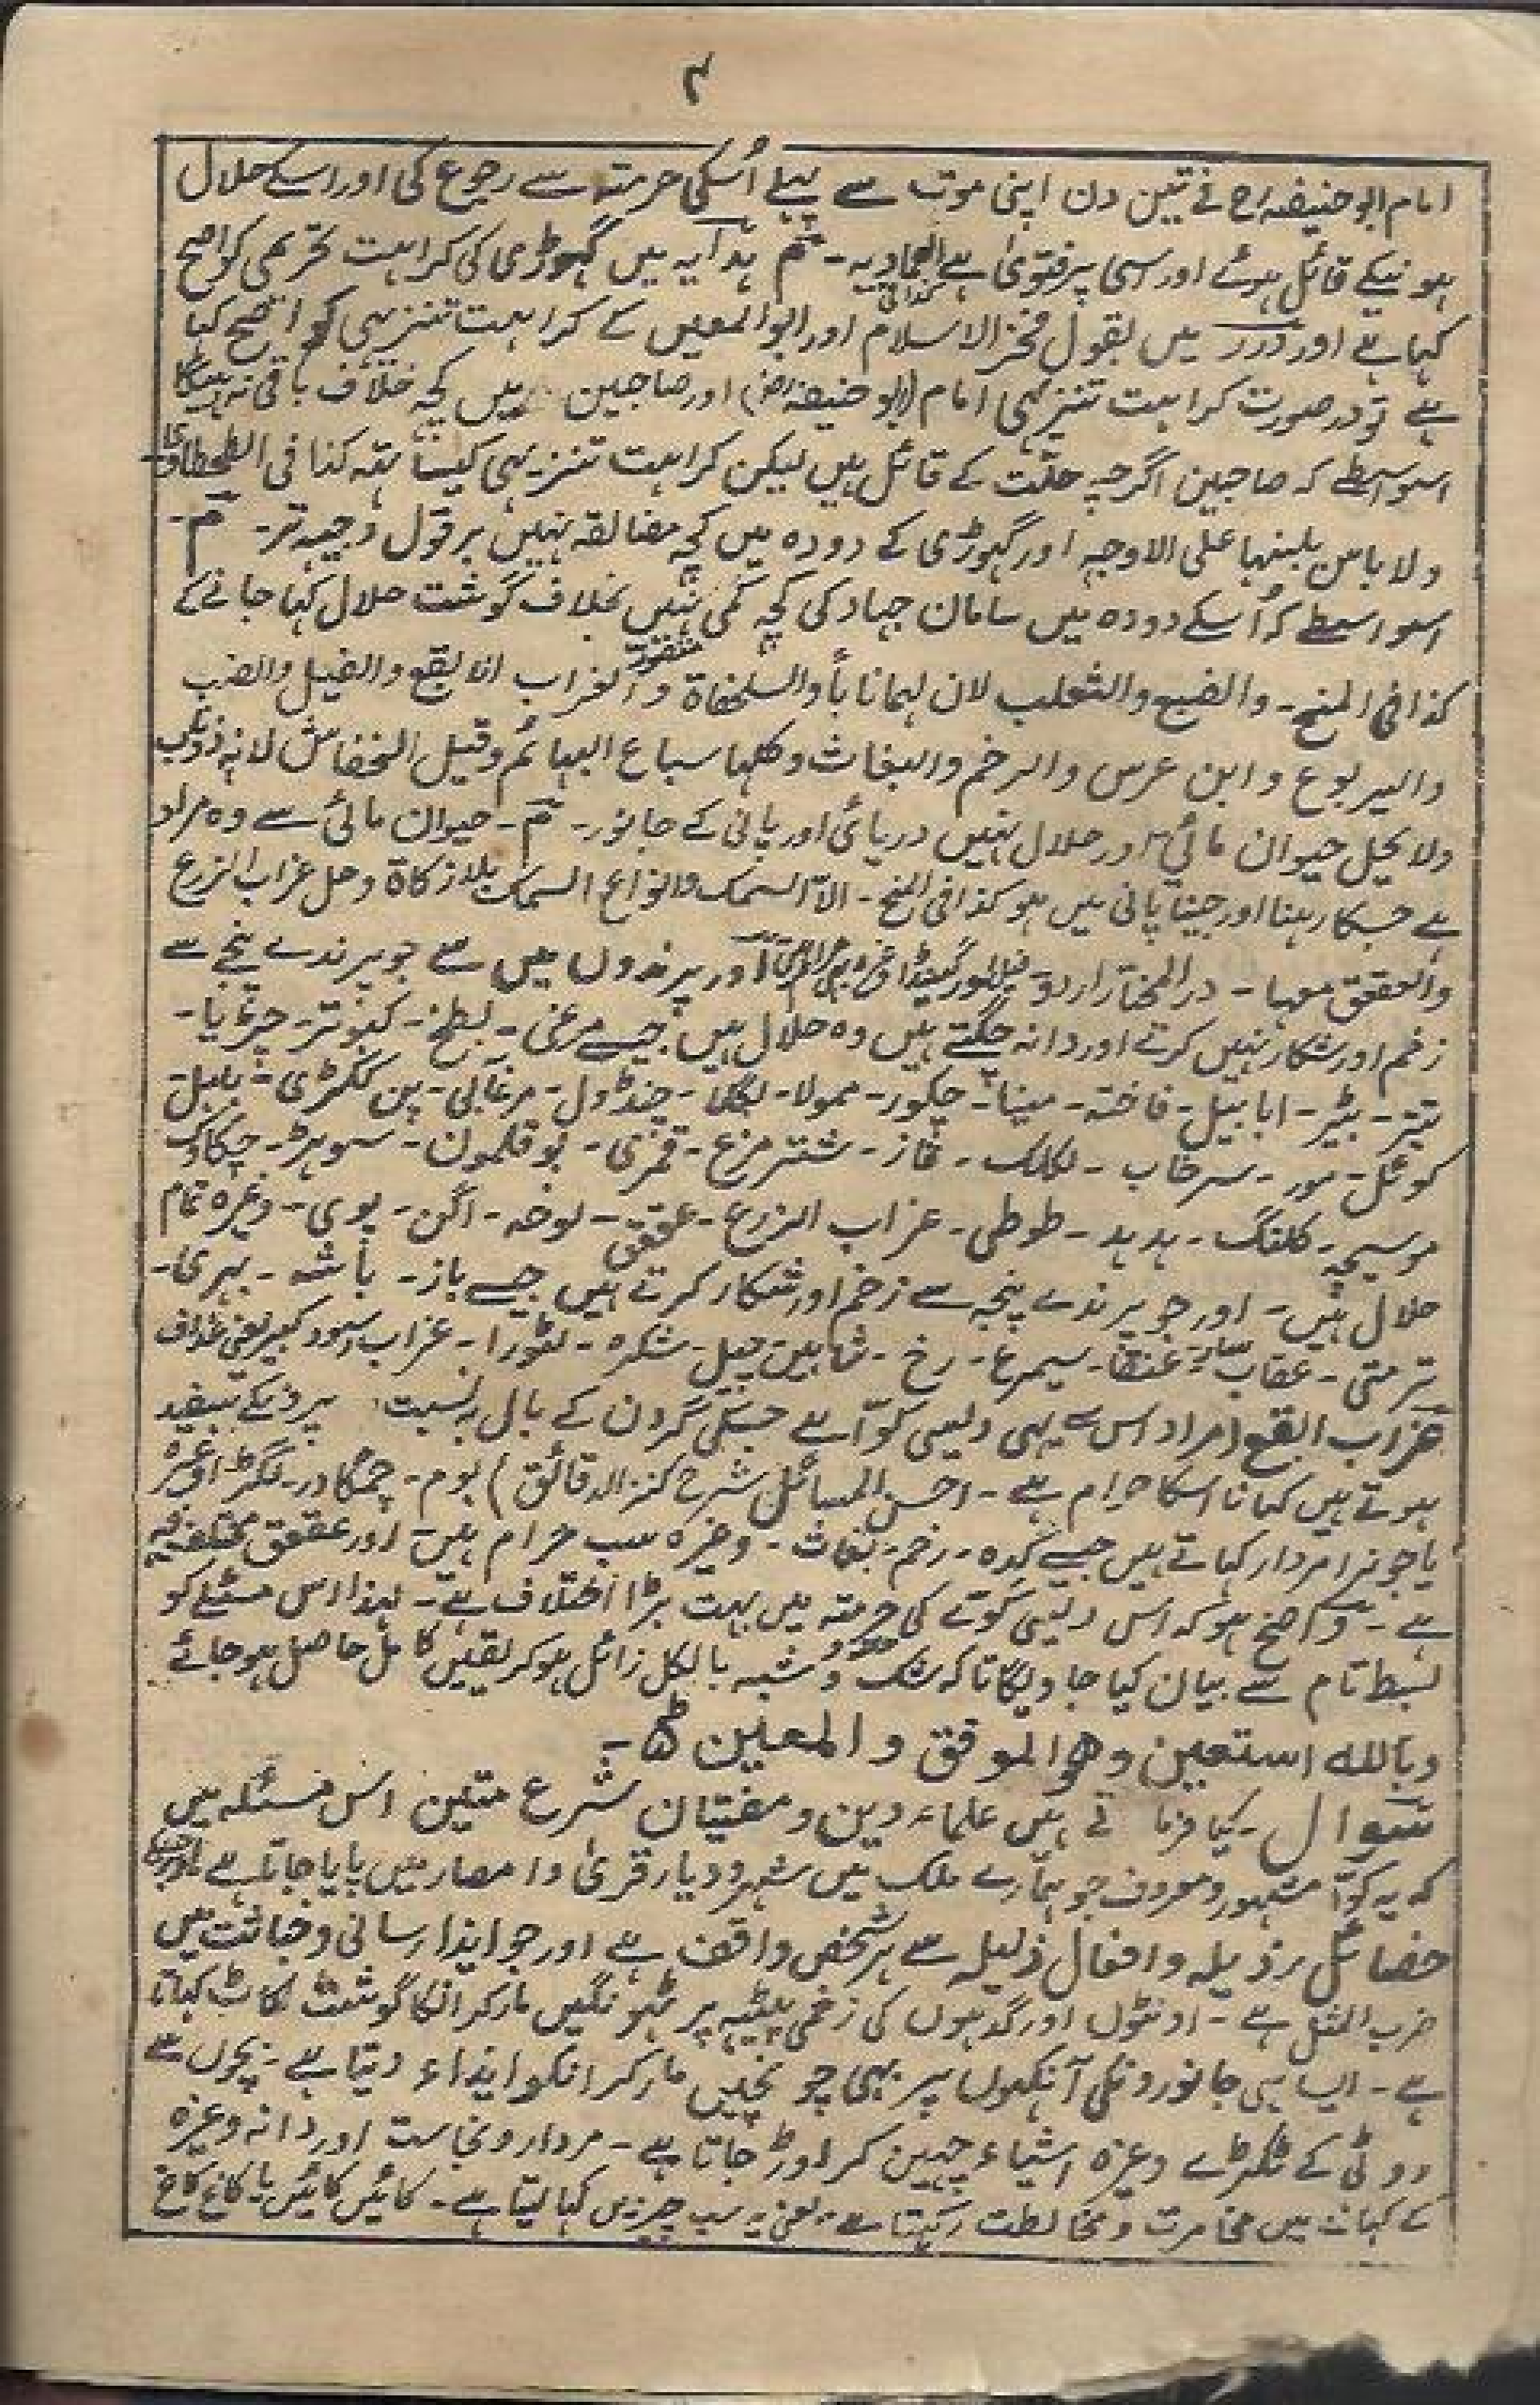 ۴
امام ابو حنیفہ رح نے تین دن اپنی موت سے پہلے اُسکی حرمتہ سے رجوع کی اور اسکے حلال
ہونیکے قائل ہوئے اور اسی پر فتویٰ ہے کذا فی العمادیہ۔ م ہدایہ میں گھوڑی کی کراہت تحریمی کو اصح
کہا ہے اور درر میں بقول فخر الاسلام اور ابو المعین کے کراہت تنزیہی کو اصح کہا
ہے تو در صورت کراہت تنزیہی امام (ابو حنیفہ رض) اور صاحبین میں کچہ خلاف باقی نہ رہیگا
اسواسطے کہ صاحبین اگرچہ حلّت کے قائل ہیں لیکن کراہت تنزیہی کیساتہہ کذا فی الطحطاوی
ولا باس بلبنہا علی الاوجہ اور گہوڑی کے دودہ میں کچہ مضائقہ نہیں بر قول وجیہ تر۔ م۔
اسواسطے کہ اُسکے دودہ میں سامان جہاد کی کچہ کمی نہیں بخلاف گوشت حلال کہا جانے کے
کذا فی المنح۔ والضبع والثعلب لان لہما ناباً والسلحفاۃ والغراب الابقع والفیل والضب
والیربوع وابن عرس والرخم والبغاث وکلہا سباع البہائم وقیل الخفاش لانہ ذو ناب
ولا یحل حیوان مائی اور حلال نہیں دریائی اور پانی کے جانور۔ م۔ حیوان مائی سے وہ مراد
ہے جسکا رہنا اور جینا پانی میں ہو کذا فی المنح۔ الا السمک وانواع السمک بلا زکاۃ وحل غراب الزرع
والعقعق معہا۔ در المختار اردو اور پرندوں میں سے جو پرندے پنجے سے
زخم اور شکار نہیں کرتے اور دانہ چگتے ہیں وہ حلال ہیں جیسے مرغی۔ بطخ۔ کبوتر۔ چڑیا۔
تیتر۔ بٹیر۔ ابابیل۔ فاختہ۔ مینا۔ چکور۔ ممولا۔ بگلا۔ چنڈول۔ مرغابی۔ پن ککڑی۔ بلبل۔
کوئل۔ مور۔ سرخاب۔ لکلک۔ قاز۔ شتر مرغ۔ قمری۔ بوقلمون۔ سوہڑ۔ چکاوک
موسیچہ۔ کلنگ۔ ہدہد۔ طوطی۔ غراب الزرع۔ عقعق۔ نوخہ۔ اگن۔ بوی۔ وغیرہ تمام
حلال ہیں۔ اور جو پرندے پنجہ سے زخم اور شکار کرتے ہیں جیسے باز۔ باشہ۔ بہری۔
ترمتی۔ عقاب۔ عنقا۔ سیمرغ۔ رخ۔ شاہین چیل۔ شکرہ۔ لٹورا۔ غراب اسود کبیر یعنی غداف
غراب ابقع (مراد اس سے یہی دیسی کوّا ہے جسکی گردن کے بال بہ نسبت پرونکے سفید
ہوتے ہیں کہانا اسکا حرام ہے۔ احسن المسائل شرح کنز الدقائق) بوم۔ چمگادر۔ لگڑ وغیرہ
یا جو نرا مردار کہاتے ہیں جیسے گدہ۔ رخم۔ بغاث۔ وغیرہ سب حرام ہیں اور عقعق مختلف فیہ
ہے۔ واضح ہو کہ اس دیسی کوّے کی حرمتہ میں بہت بڑا اختلاف ہے۔ لہذا اس مسئلے کو
بسط تام سے بیان کیا جاویگا تاکہ شک و شبہ بالکل زائل ہوکر یقین کامل حاصل ہو جائے
وباللہ استعین وھو الموفق والمعین ۵۔
سوال۔ کیا فرماتے ہیں علماء دین ومفتیان شرع متین اس مسئلہ میں
کہ یہ کوّا مشہور و معروف جو ہمارے ملک میں شہر و دیار قریٰ وامصار میں پایا جاتا ہے اور جسکے
خصائل رذیلہ وافعال ذلیلہ سے ہر شخص واقف ہے اور جو ایذا رسانی وخباثت میں
ضرب المثل ہے۔ اونٹوں اور گدہوں کی زخمی پیٹہہ پر ٹہونگیں مارکر انکا گوشت کاٹ کہاتا
ہے۔ ایسا ہی جانورونکی آنکہوں پر بہی چونچیں مارکر انکو ایذاء دیتا ہے۔ بچوں سے
روٹی کے ٹکڑے وغیرہ اشیاء چہین کر اوڑ جاتا ہے۔ مردار ونجاست اور دانہ وغیرہ
کے کہانے میں مخامرت ومخالطت رکہتا ہے یعنی یہ سب چیزیں کہا لیتا ہے۔ کائیں کائیں یا کاغ کاغ